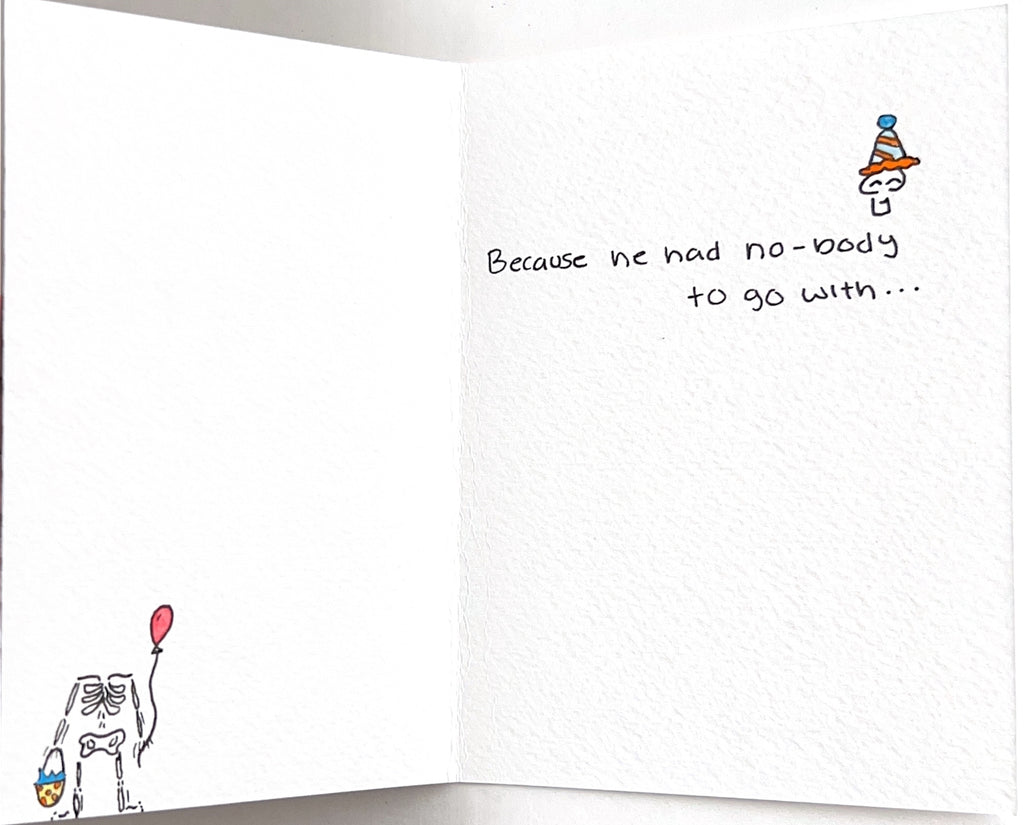 Because he had no-body
to go with...